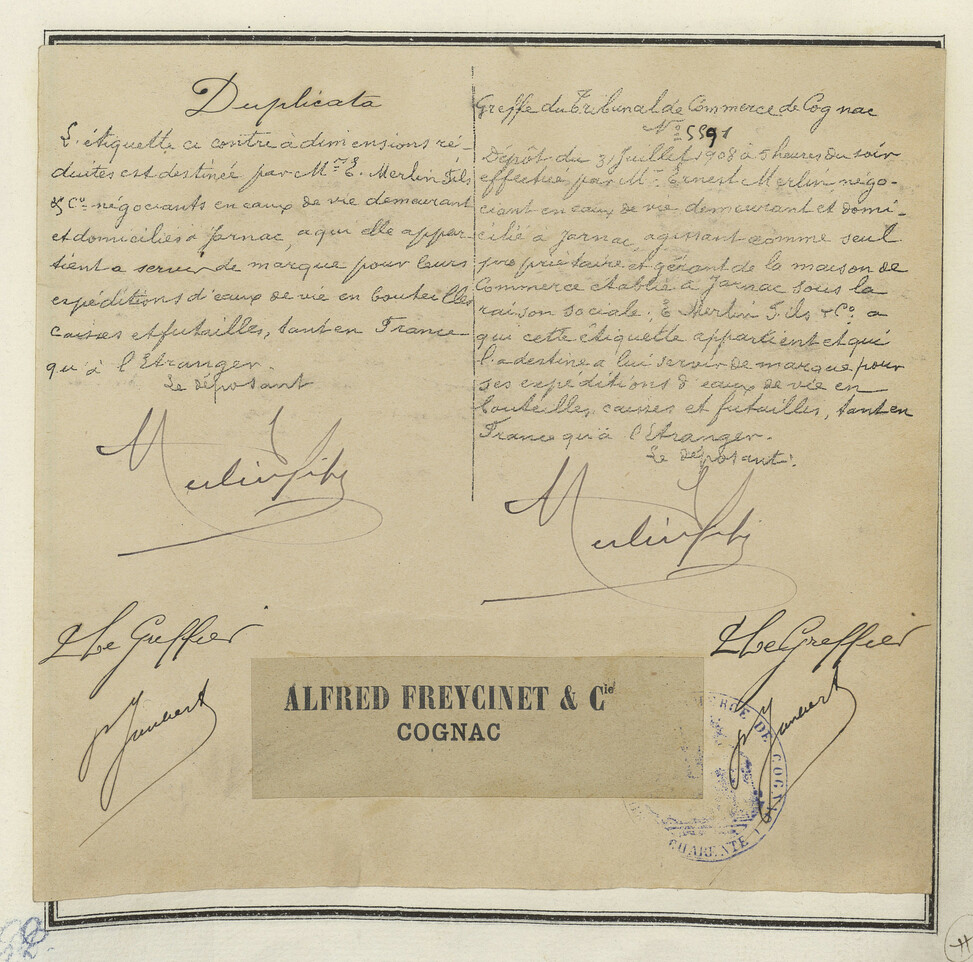 Duplicata
L'étiquette ci contre à dimensions ré-
duites est destinée par Mrs E. Merlin Fils
& Co négociants en eaux de vie demeurant
et domiciliés à Jarnac, a qui elle appar-
tient a servir de marque pour leurs
expéditions d'eaux de vie en bouteilles
caisses et futailles, tant en France
qu'à l'Etranger.
Le déposant
Merlin Fils
Greffe du Tribunal de Commerce de Cognac
No 5591
Dépôt du 31 Juillet 1908 à 5 heures du soir
effectué par Mr Ernest Merlin négo-
ciant en eaux de vie demeurant et domi-
cilié à Jarnac, agissant comme seul
propriétaire et gérant de la maison de
Commerce établie à Jarnac sous la
raison sociale, E Merlin Fils & Co a
qui cette étiquette appartient et qui
l'a destine a lui servir de marque pour
ses expéditions d'eaux de vie en
bouteilles, caisses et futailles, tant en
France qu'à l'Etranger.
Le déposant.
Merlin Fils
Le Greffier
Le Greffier
ALFRED FREYCINET & Cie
COGNAC
DE COGNAC
CHARENTE